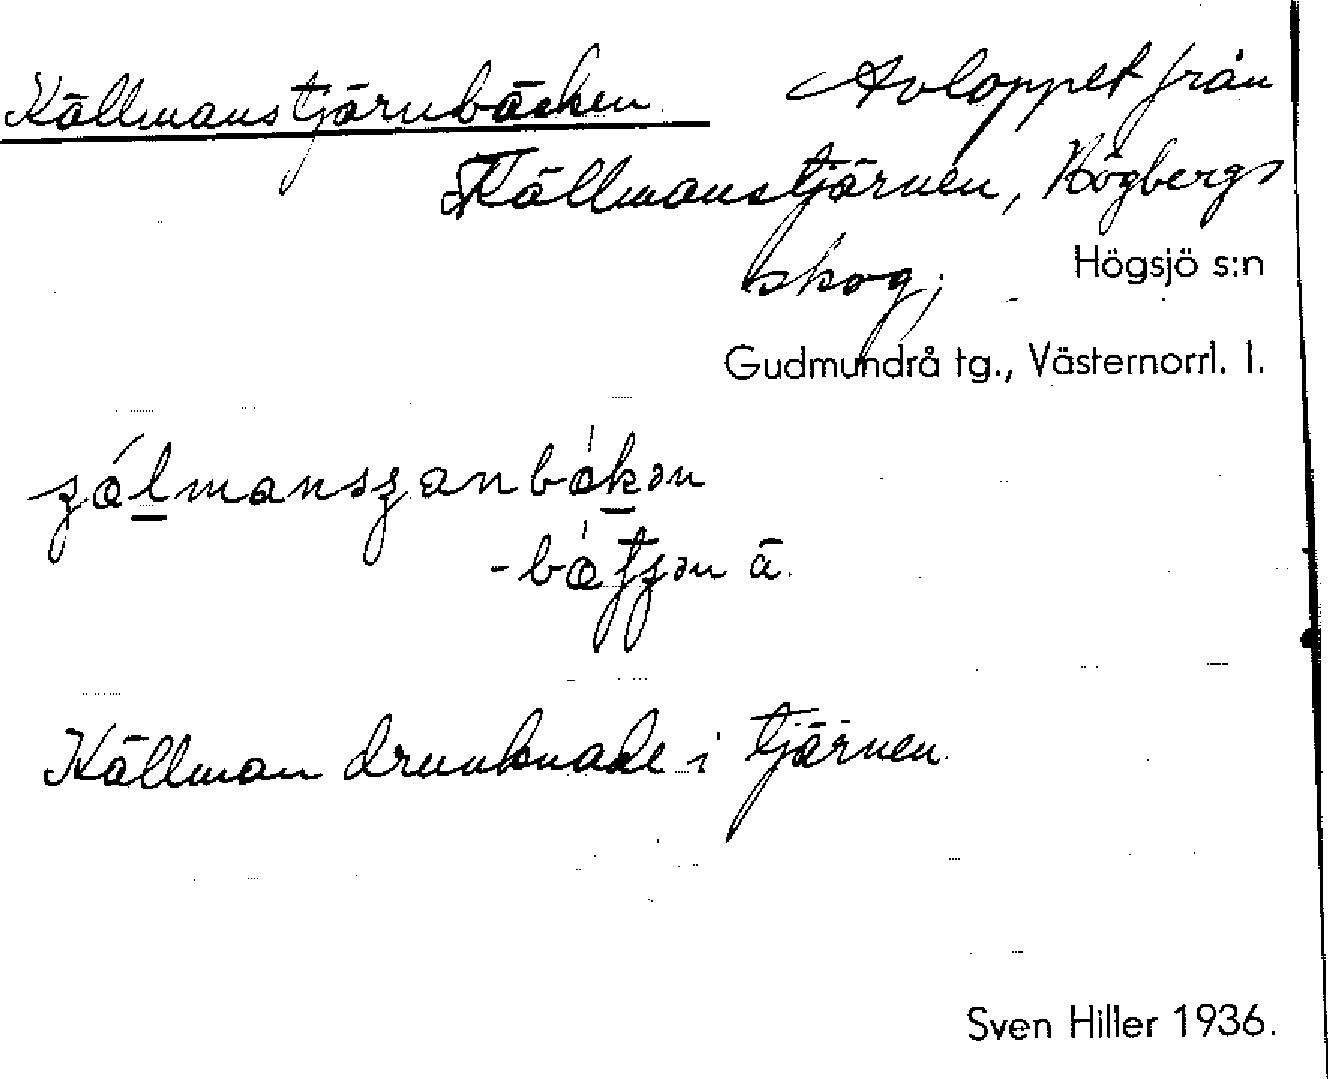 Källmanstjärnbäcken. Avloppet från
Källmanstjärnen, Högbergs
skog;
Högsjö s:n
Gudmundrå tg., Västernorrl. l.
Källman drunknade i tjärnen.
Sven Hiller 1936.